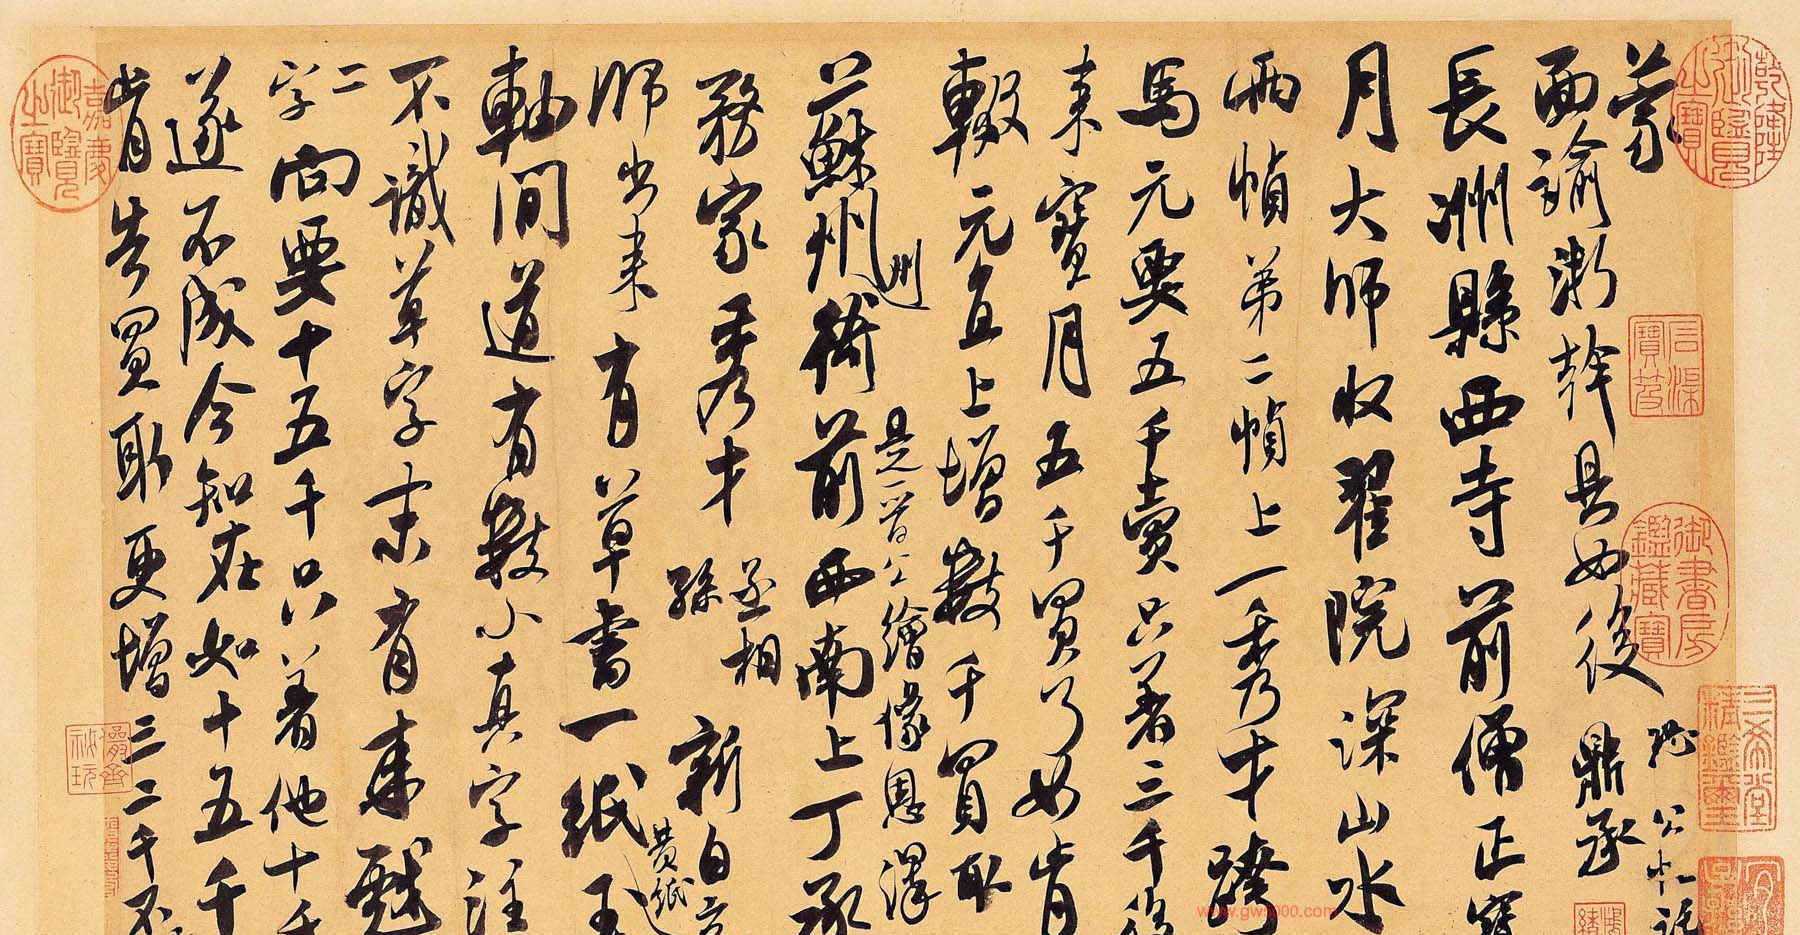 蒙
面諭浙幹具如後 鼎承
長洲縣西寺前僧正寶
月大師收翟院深山水
兩幀第二幀上一秀才跨
馬元要五千賣只著三千後
來寶月五千買了如肯
轍元直上增數千買取
是一晉公繪像恩澤
蘇州衙前西南上丁承
州
務家秀才
丞相
孫
新自京
師出來有草書一紙
黃紙
軸間道有數小真字注
不識草字末有來戲
二
字向要十五千只著他十千
遂不成今知在如十五千
肯告買取更增三二千不
乾隆御覽之寶
石渠寶笈
御書房鑑藏寶
三希堂精鑑璽
嘉慶御覽之寶
www.gw5000.com